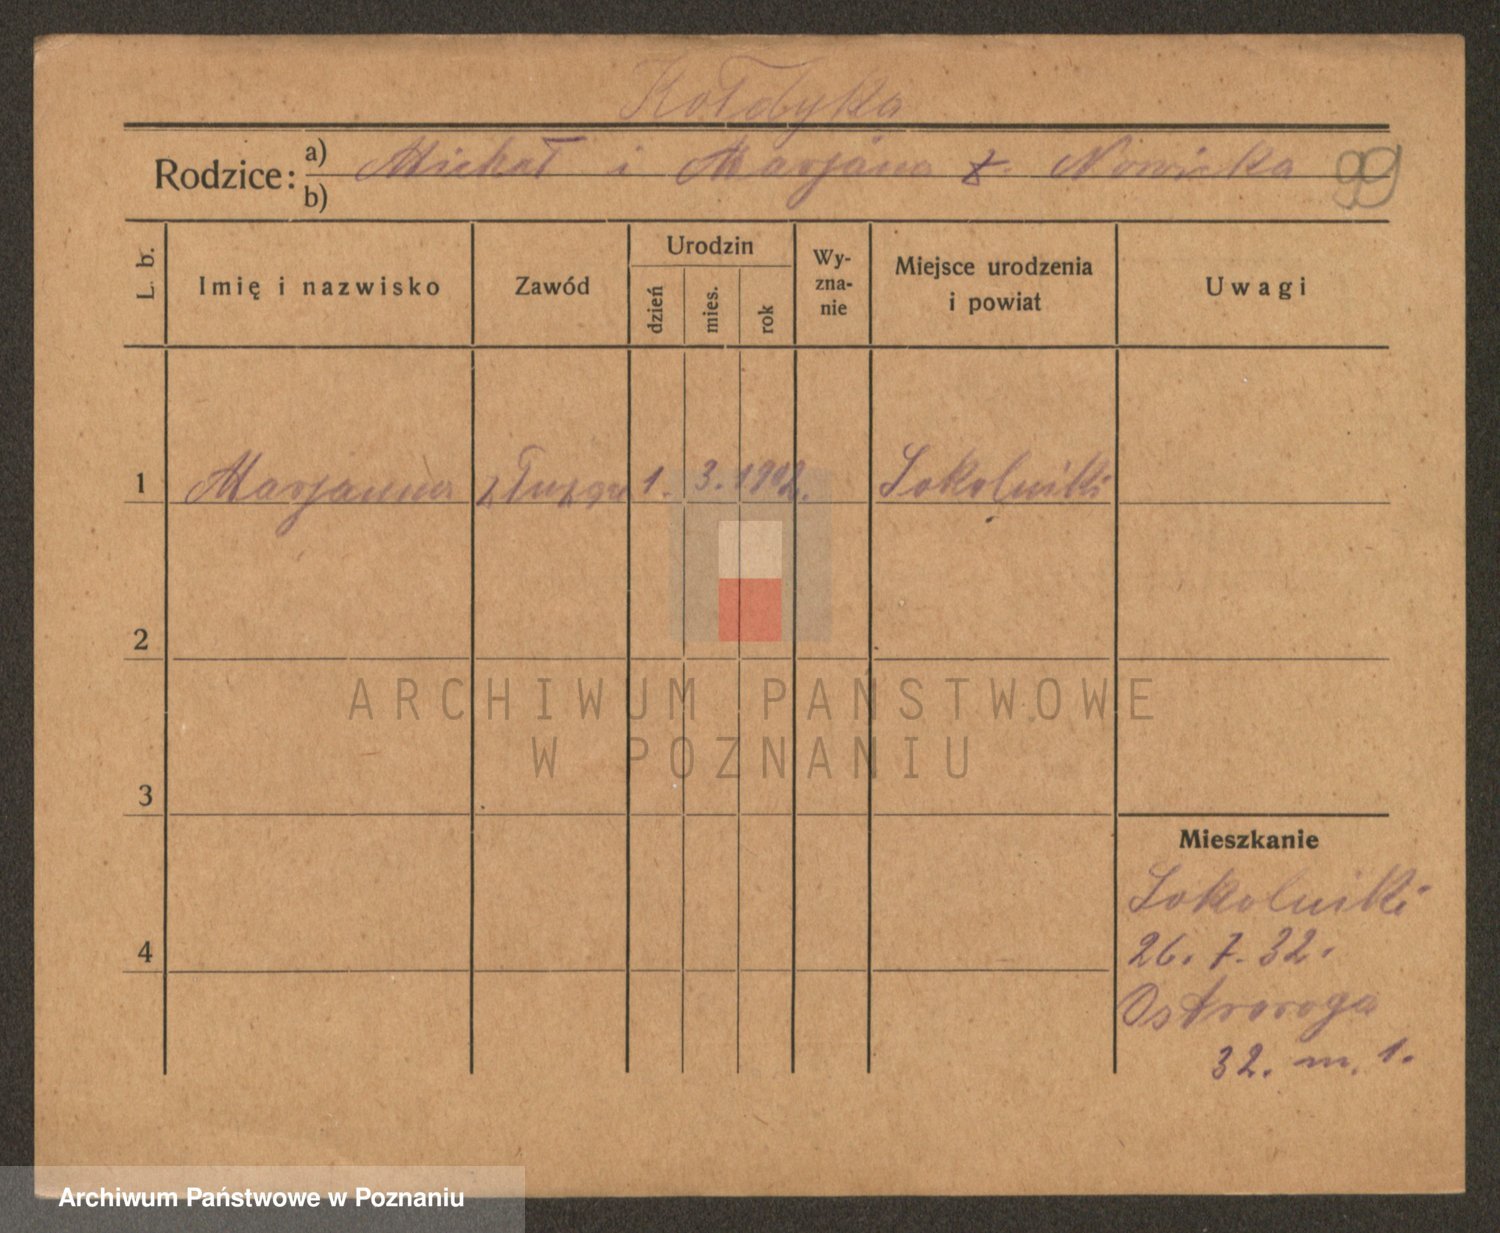 Kołdyka
Rodzice: a) Michał i Marjana z. Nowicka 99
b)
L. b. Imię i nazwisko Zawód Urodzin dzień mies. rok Wy-zna-nie Miejsce urodzenia i powiat Uwagi
1 Marjanna 1. 3. 1912. Sokolniki
2
ARCHIWUM PAŃSTWOWE
W POZNANIU
3
Mieszkanie
Sokolniki
26. 7. 32.
4
Ostroroga
32. m. 1.
Archiwum Państwowe w Poznaniu